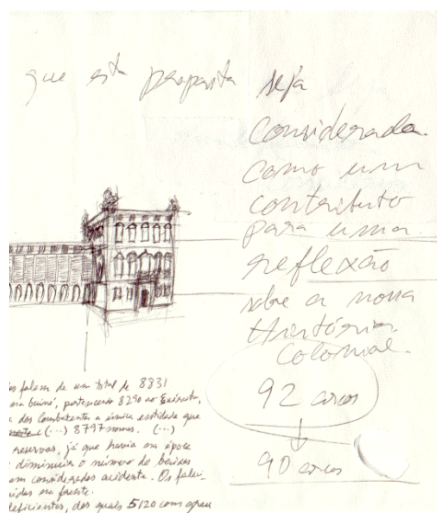 que esta proposta seja
considerada
como um
contributo
para uma
reflexão
sobre a nossa
História
Colonial.
92 arcos
90 arcos
falam de um total de 8831
pertencendo 8290 ao Exército,
dos Combatentes a única entidade que
(...) 8797 nomes. (...)
reservas, já que havia na época
diminuir o número de baixas
em considerados acidente. Os
na frente.
deficientes, dos quais 5120 com